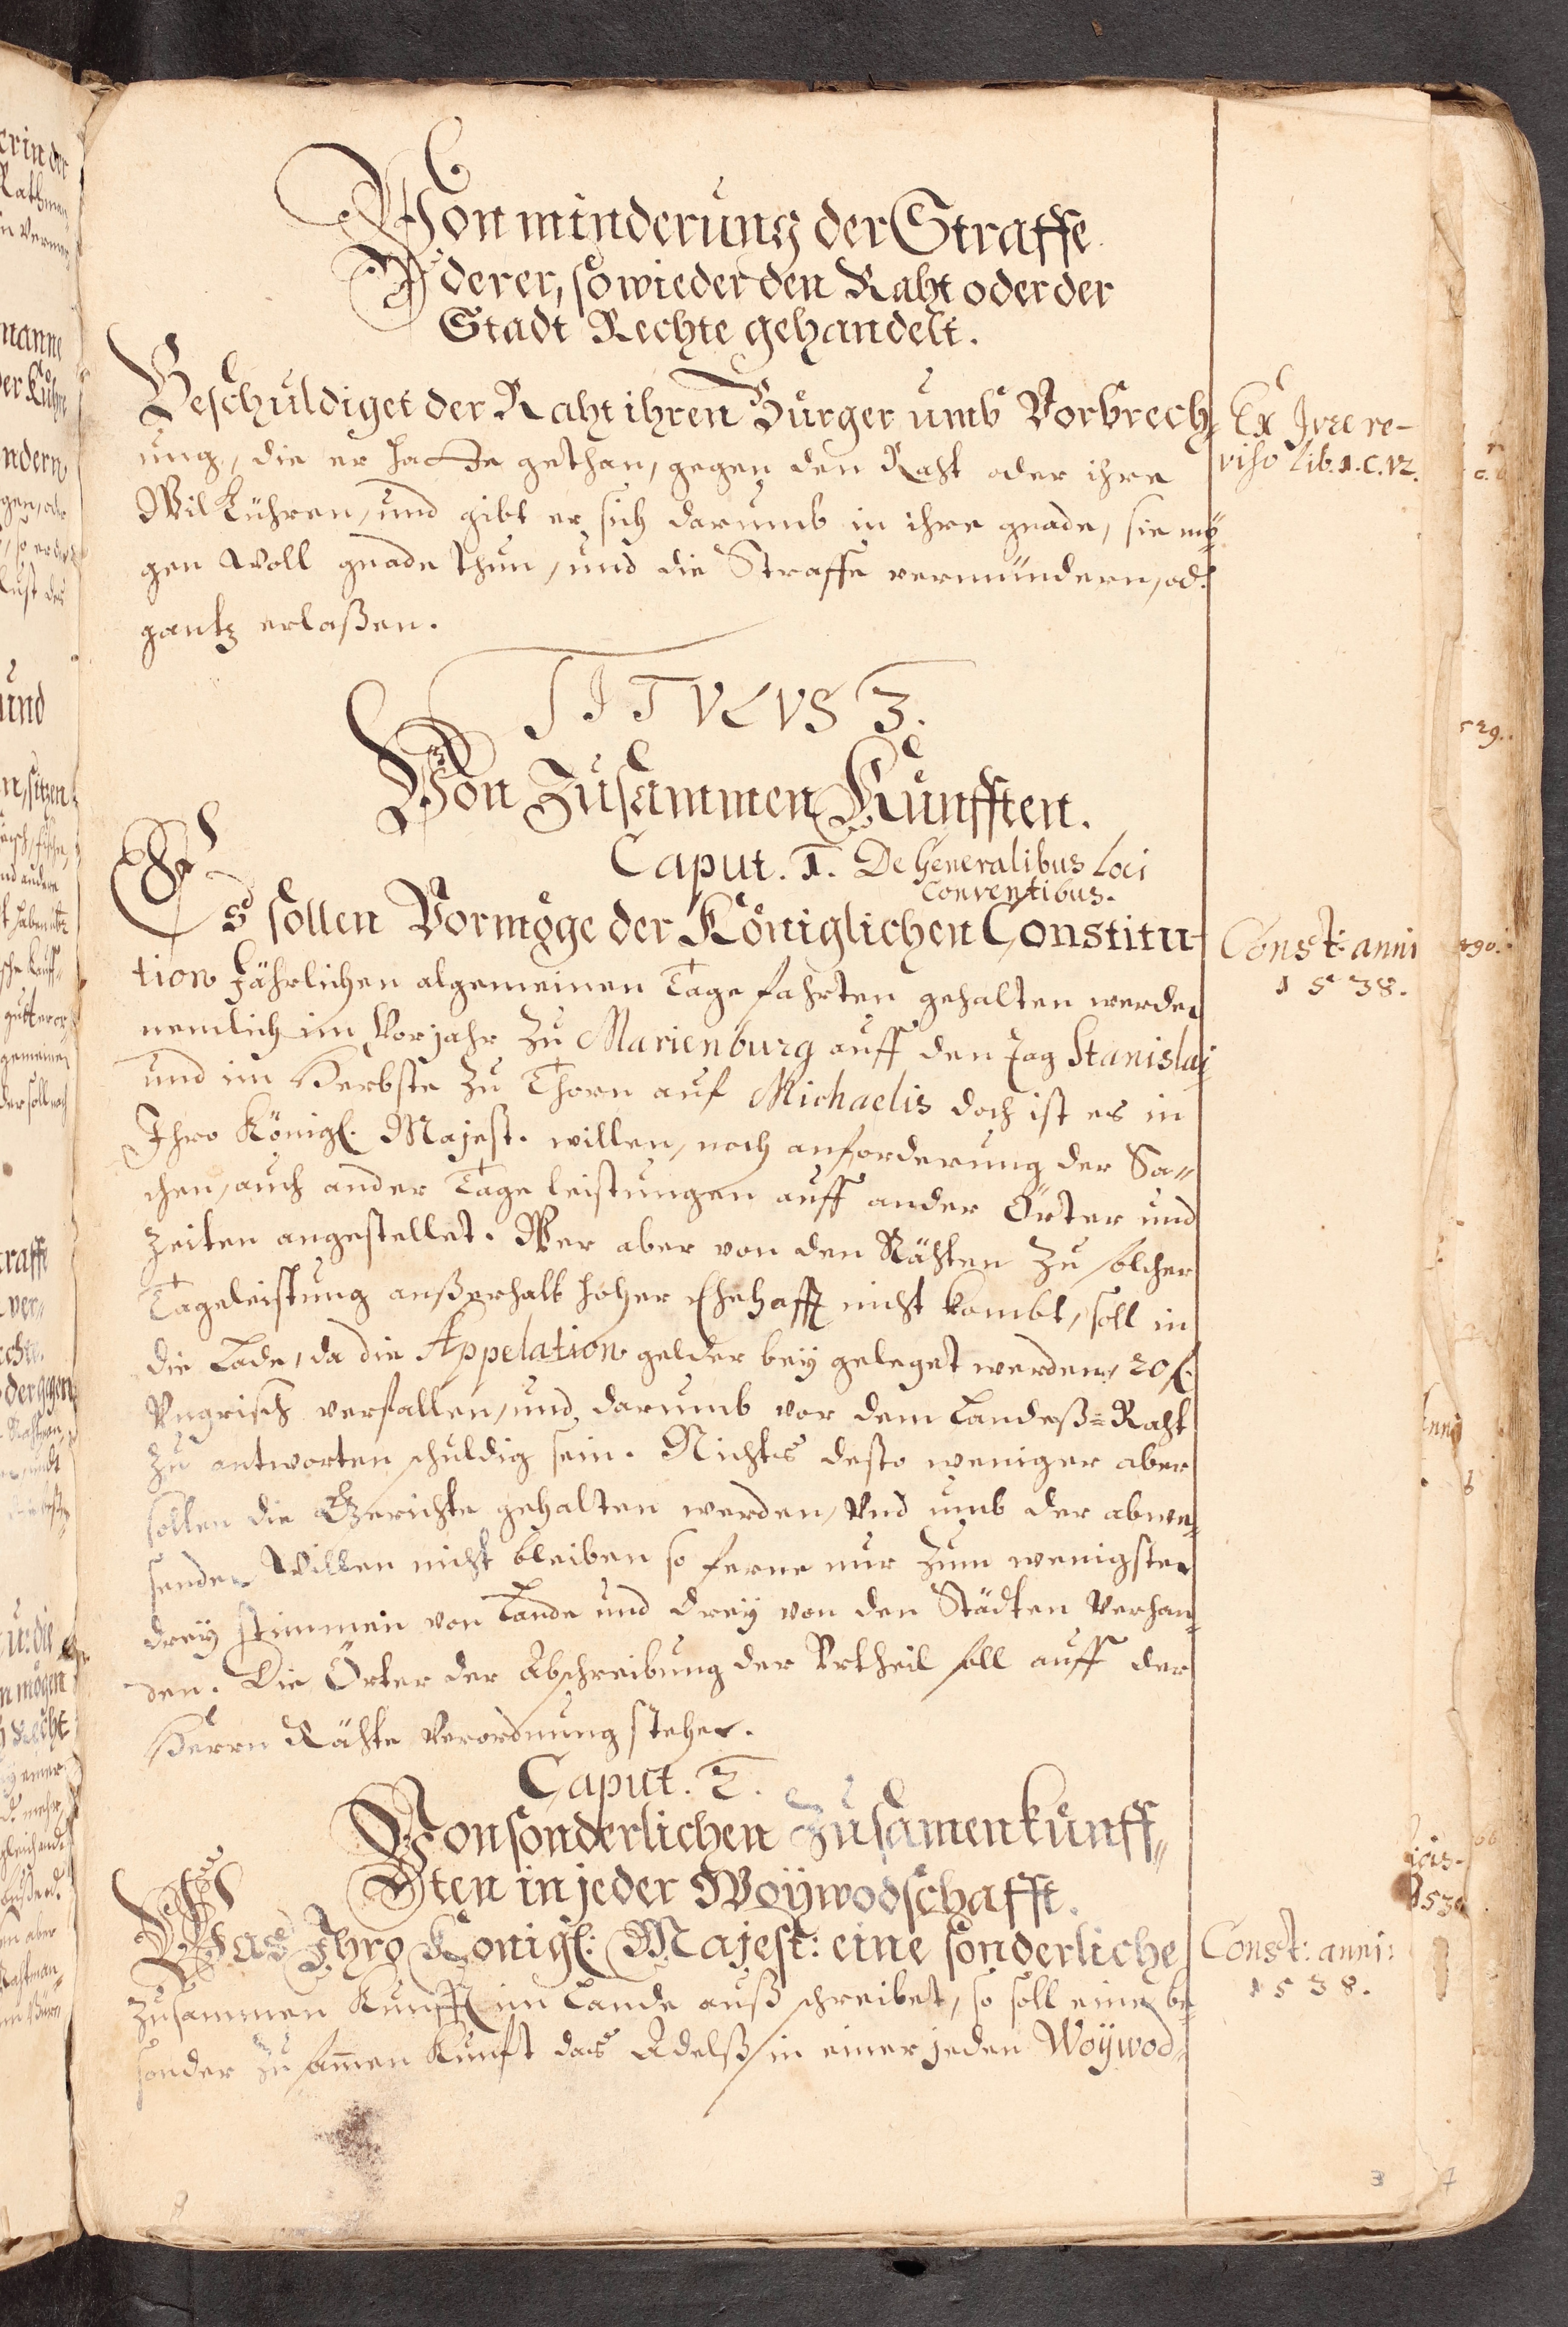 Von minderung der Straffe
derer, so wieder den Raht oder der
Stadt Rechte gehandelt.
Beschuldiget der Raht ihren Bürger umb Vorbrech-
ung, die er hatte gethan, gegen den Raht oder ihre
Wilkühren, und gibt er sich darumb in ihre gnade, sie mö-
gen woll gnade thun, und die Straffe vermindern, od.
gantz erlaßen.
Ex Jure re-
viso Lib. 1. C. 12.
TITVLVS 3.
Von Zusammen Kunfften.
Caput. 1. De Generalibus Loci
Conventibus.
Es sollen Vormöge der Königlichen Constitu-
tion Jährlichen algemeinen Tagefahrten gehalten werden
nemlich im Vorjahr zu Marienburg auff den Tag Stanislai
und im Herbste zu Thorn auf Michaelis doch ist es in
Ihro Königl. Majest. willen, nach anforderung der Sa-
chen, auch ander Tageleistungen auff ander Örter und
Zeiten angestellet. Wer aber von den Rähten zu solcher
Tageleistung außerhalb hoher Ehehafft nicht kombt, soll in
die Lade, da die Appelation gelder bey geleget werden, 20 fl.
Vngrisch verfallen, und darumb vor dem Landeß-Raht
zu antworten schuldig sein. Nichts desto weniger aber
sollen die Gerichte gehalten werden, Vnd umb der abwe-
senden Willen nicht bleiben so ferne nur zum wenigsten
drey stimmen von Lande und drey von den Städten Verhan-
den. Die Örter der Abschreibung der Vrtheil soll auff der
Herrn Rähte Verordnung stehen.
Const: anni
1538.
Caput. 2.
Von sonderlichen Zusamenkunff-
ten in jeder Woÿwodschafft.
Was Ihro Königl: Majest: eine sonderliche
Zusammen Kunfft im Lande auß schreibet, so soll eine be-
sonder Zusamen Kunft das Adelß in einer jeden Woÿwod-
Const: anni:
1538.
3
7